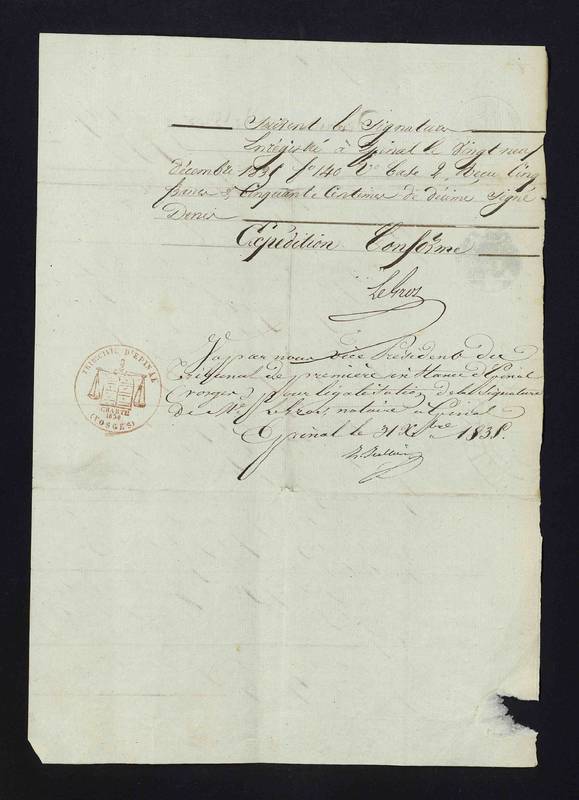 Suivent les Signatures
Enrégistré à Epinal le Vingt neuf
décembre 183 fo 140 Vo Case 2, Reçu Cinq
francs & Cinquante Centimes de décime Signé
Denis
Expédition Conforme
LeGros
Vu par nous Vice Président du
tribunal de première instance d'Epinal
(vosges) pour légalisation de la Signature
de Me LeGros, notaire à Epinal
Epinal le 31 Xbre 183
TRIB. CIVIL D'EPINAL
CHARTE
1830
(VOSGES)